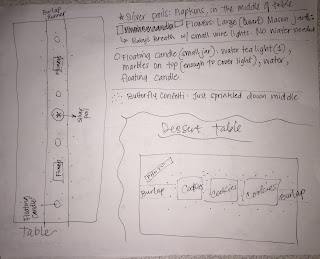 Burlap
Runner
* Silver pails: Napkins, in the middle of table
Flowers: Large (Quart) Mason jars
↳ Baby's Breath w/ small wire lights. No water needed
○ Floating candle (small jar): Water tea light (s),
marbles on top (enough to cover light), water,
floating candle.
Butterfly Confetti - Just sprinkled down middle
Flowers
Silver
Pail
Flowers
Floating
Candle
Table
Dessert Table
PHOTO
Burlap
Cookies
Cookies
Cookies
Burlap